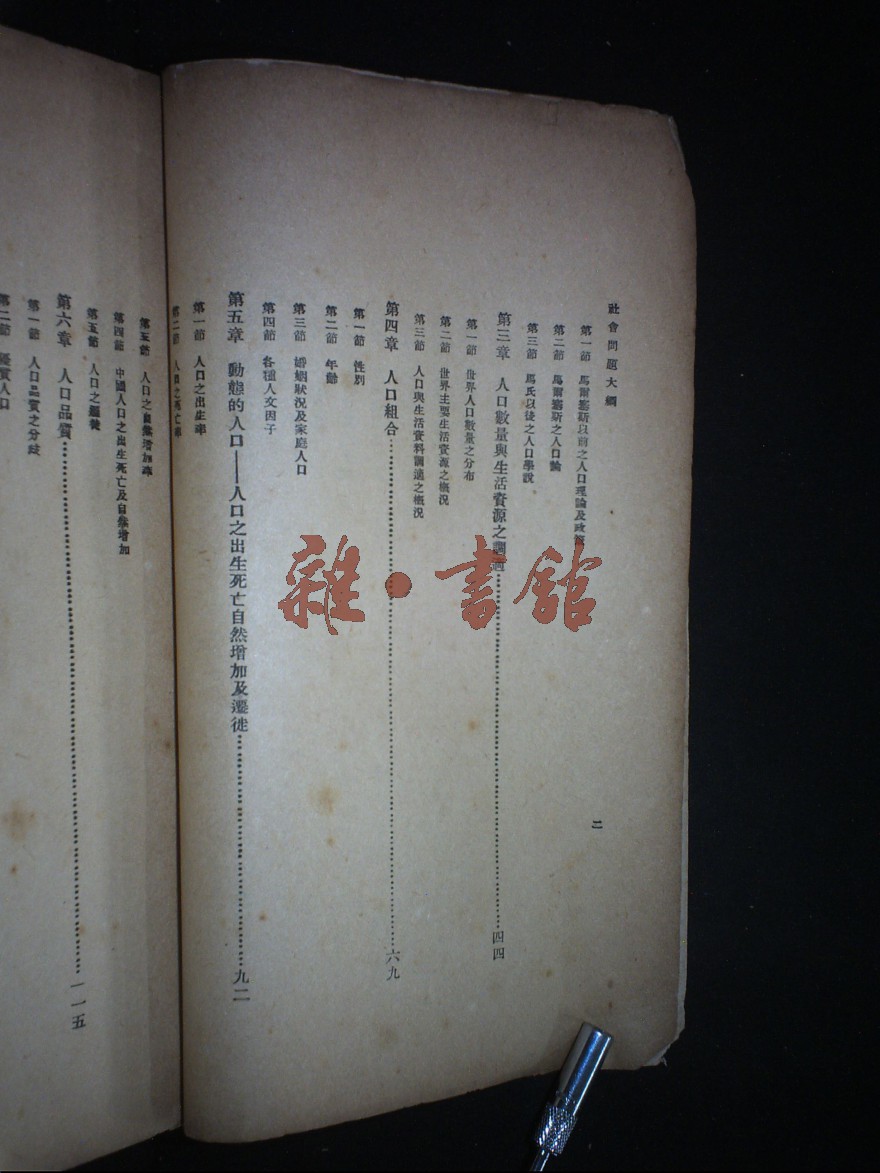 社會問題大綱
二
第一節 馬爾塞斯以前之人口理論及政策
第二節 馬爾塞斯之人口論
第三節 馬氏以後之人口學說
第三章 人口數量與生活資源之調適 四四
第一節 世界人口數量之分布
第二節 世界主要生活資源之概況
第三節 人口與生活資料調適之概況
第四章 人口組合 六九
第一節 性別
第二節 年齡
第三節 婚姻狀況及家庭人口
第四節 各種人文因子
第五章 動態的人口——人口之出生死亡自然增加及遷徙 九二
第一節 人口之出生率
第二節 人口之死亡率
人口之自然增加率
第四節 中國人口之出生死亡及自然增加
第五節 人口之遷徙
第六章 人口品質 一一五
第一節 人口品質之分歧
第二節 優質人口
雜·書館